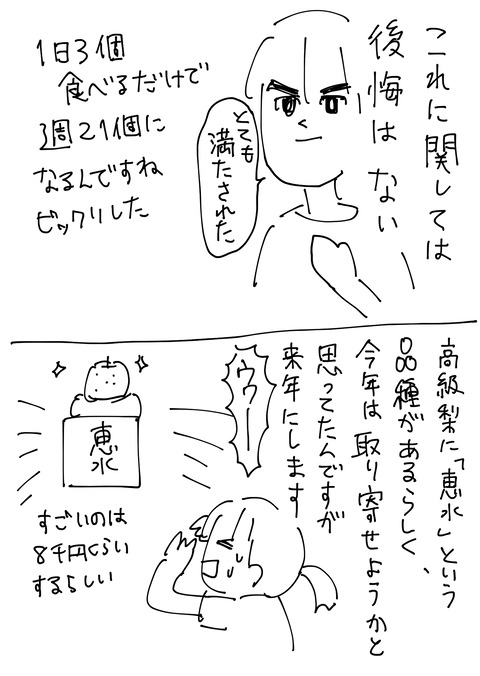 これに関しては
後悔はない
とても
満たされた
1日3個
食べるだけで
1週21個に
なるんですね
ビックリした
高級梨に「恵水」という
品種があるらしく、
今年は取り寄せようかと
思ってたんですが
来年にします
ウウー
恵
水
すごいのは
8千円くらい
するらしい